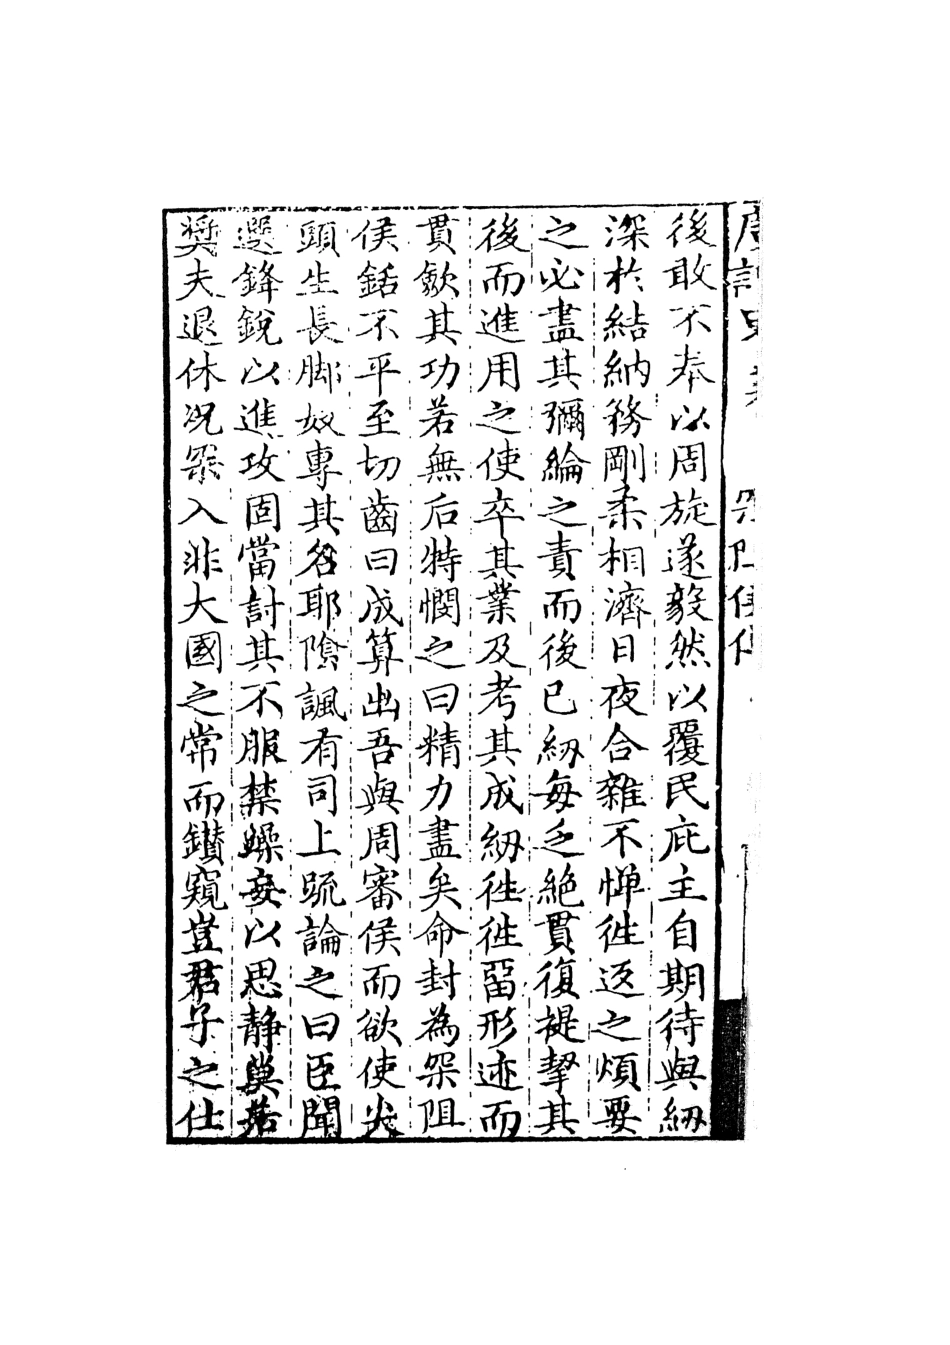 後敢不奉以周旋遂毅然以覆民庇主自期待與紉
深於結納務剛柔相濟日夜合雜不憚徃返之煩要
之必盡其彌綸之責而後已紉每乏絶貫復提挈其
後而進用之使卒其業及考其成紉徃徃留形迹而
貫歛其功若無后特憫之曰精力盡矣命封為罘阻
侯銛不平至切齒曰成算出吾與周審侯而欲使尖
頭生長脚奴專其名耶陰諷有司上疏論之曰臣聞
選鋒銳以進攻固當討其不服禁躁妄以思靜莫若
奬夫退休况罘入非大國之常而鑚窺豈君子之仕